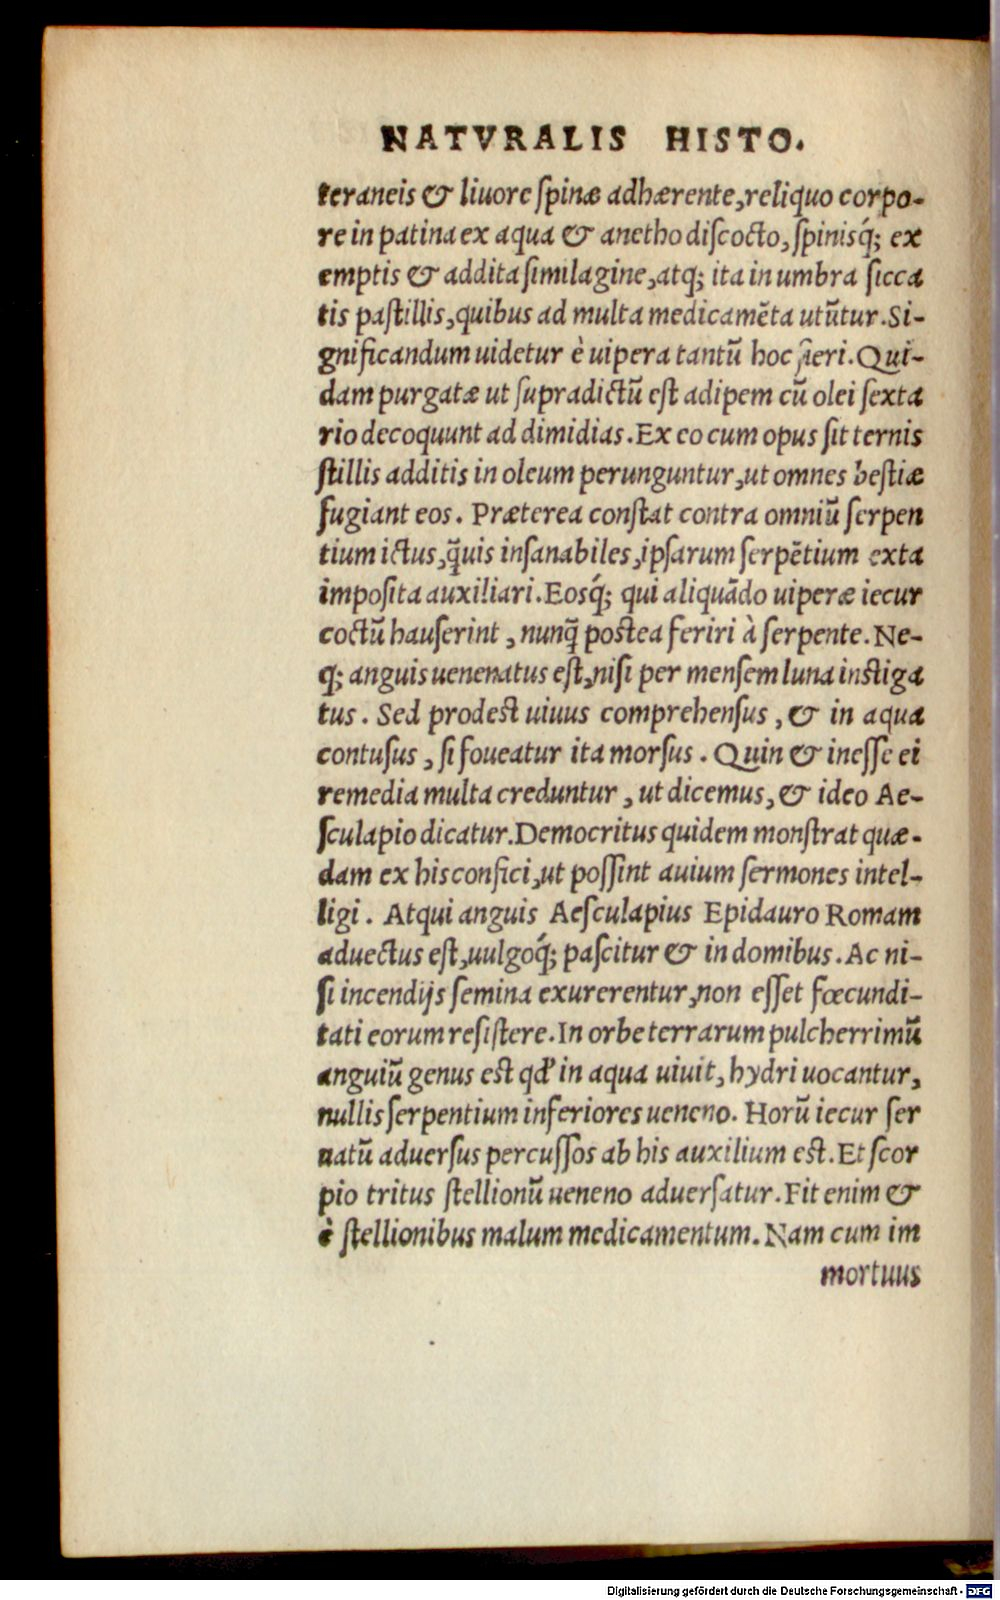 NATVRALIS HISTO.
teraneis & liuore ſpinæ adhærente, reliquo corpo-
re in patina ex aqua & anetho diſcocto, ſpinisq́; ex
emptis & addita ſimilagine, atq; ita in umbra ſicca
tis paſtillis, quibus ad multa medicamēta utūtur. Si-
gnificandum uidetur è uipera tantū hoc fieri. Qui-
dam purgatæ ut ſupradictū eſt adipem cū olei ſexta
rio decoquunt ad dimidias. Ex eo cum opus ſit ternis
ſtillis additis in oleum perunguntur, ut omnes beſtiæ
fugiant eos. Præterea conſtat contra omniū ſerpen
tium ictus, q̃uis inſanabiles, ipſarum ſerpētium exta
impoſita auxiliari. Eosq́; qui aliquādo uiperæ iecur
coctū hauſerint, nunq̃ poſtea feriri à ſerpente. Ne-
q; anguis uenenatus eſt, niſi per menſem luna inſtiga
tus. Sed prodeſt uiuus comprehenſus, & in aqua
contuſus, ſi foueatur ita morſus. Quin & ineſſe ei
remedia multa creduntur, ut dicemus, & ideo Ae-
ſculapio dicatur. Democritus quidem monſtrat quæ-
dam ex his confici, ut poſſint auium ſermones intel-
ligi. Atqui anguis Aeſculapius Epidauro Romam
aduectus eſt, uulgoq́; paſcitur & in domibus. Ac ni-
ſi incendijs ſemina exurerentur, non eſſet fœcundi-
tati eorum reſiſtere. In orbe terrarum pulcherrimū
anguiū genus eſt qd' in aqua uiuit, hydri uocantur,
nullis ſerpentium inferiores ueneno. Horū iecur ſer
uatū aduerſus percuſſos ab his auxilium eſt. Et ſcor
pio tritus ſtellionū ueneno aduerſatur. Fit enim &
è ſtellionibus malum medicamentum. Nam cum im
mortuus
Digitalisierung gefördert durch die Deutsche Forschungsgemeinschaft - DFG